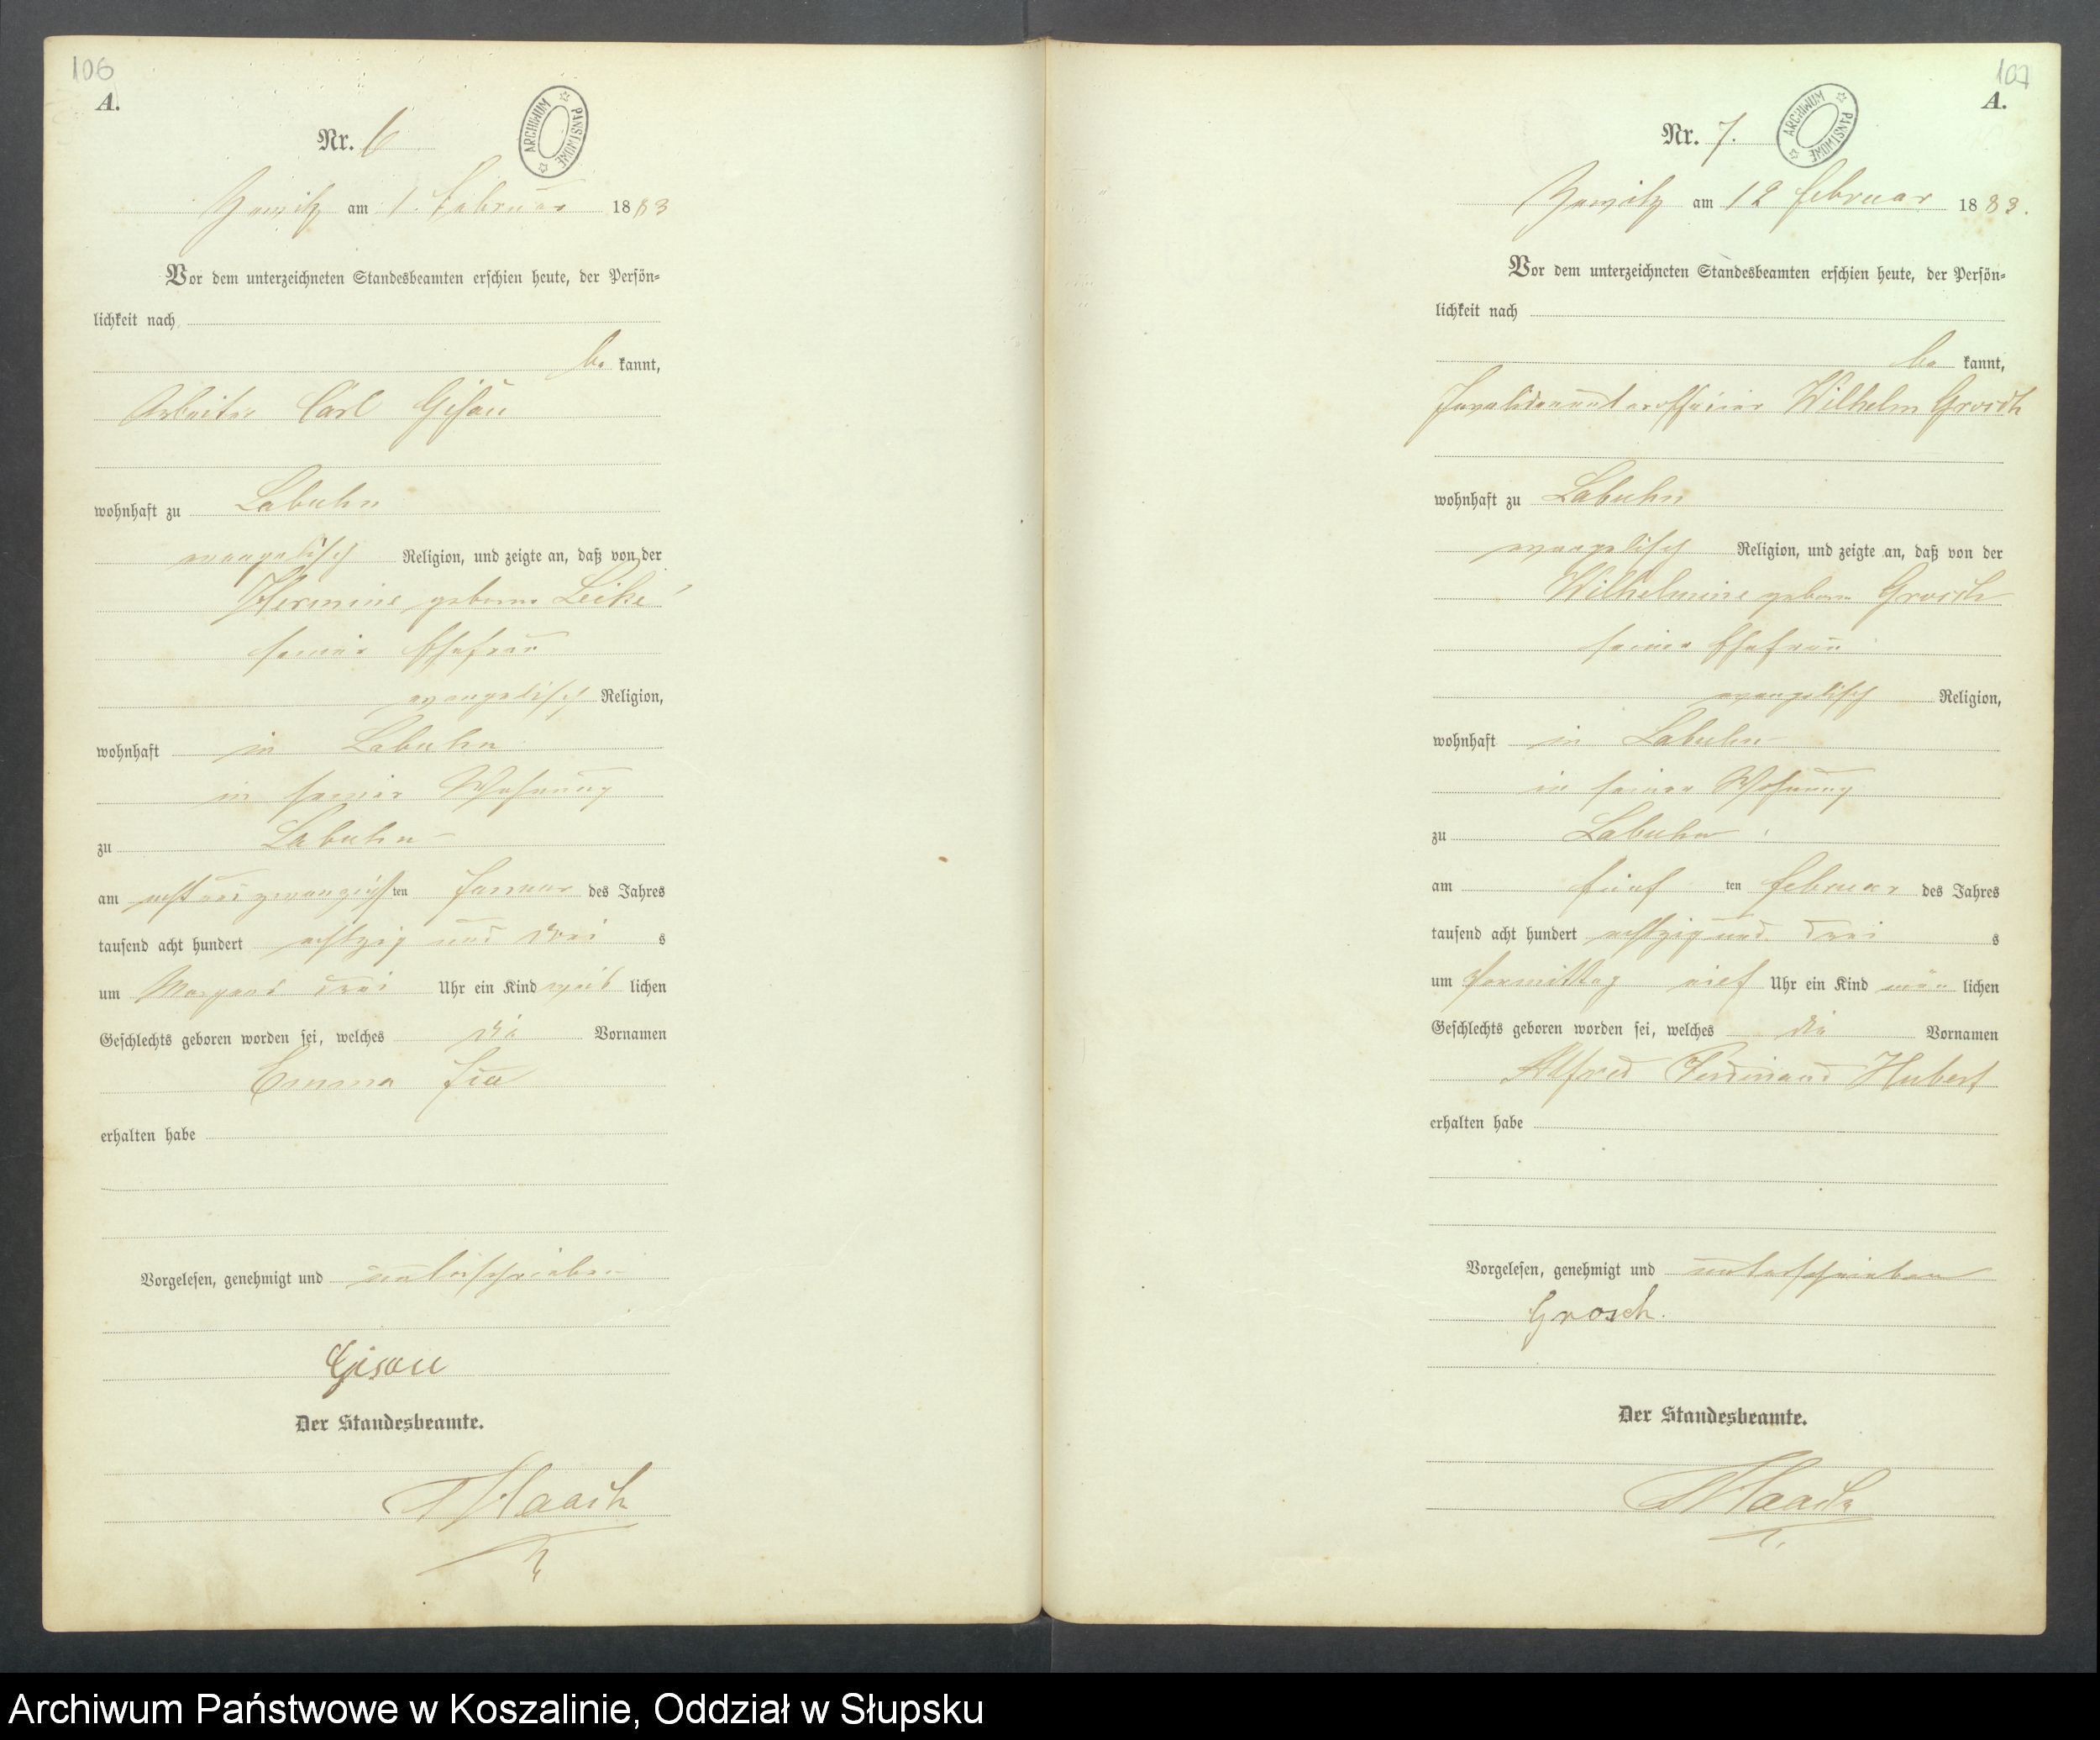 106
A.
Nr. 6
ARCHIWUM PAŃSTWOWE
Zewitz am 1. Februar 1883
Vor dem unterzeichneten Standesbeamten erschien heute, der Persön-
lichkeit nach
be kannt,
Arbeiter Carl Gisau
wohnhaft zu Labuhn
evangelisch Religion, und zeigte an, daß von der
Hermine geborne Leike
seiner Ehefrau
evangelisch Religion,
wohnhaft in Labuhn
in seiner Wohnung
zu Labuhn
am acht und zwanzigsten Januar des Jahres
tausend acht hundert achtzig und drei s
um Morgens drei Uhr ein Kind weib lichen
Geschlechts geboren worden sei, welches die Vornamen
Emma Ida
erhalten habe
Vorgelesen, genehmigt und unterschrieben
Gisau
Der Standesbeamte.
Haack
107
A.
Nr. 7.
ARCHIWUM PAŃSTWOWE
Zewitz am 12 Februar 1883.
Vor dem unterzeichneten Standesbeamten erschien heute, der Persön-
lichkeit nach
be kannt,
Invalidenunterofficier Wilhelm Grosch
wohnhaft zu Labuhn
evangelisch Religion, und zeigte an, daß von der
Wilhelmine geborne Grosch
seiner Ehefrau
evangelisch Religion,
wohnhaft in Labuhn
in seiner Wohnung
zu Labuhn
am fünf ten Februar des Jahres
tausend acht hundert achtzig und drei s
um Vormittag elf Uhr ein Kind män lichen
Geschlechts geboren worden sei, welches die Vornamen
Alfred Ferdinand Hubert
erhalten habe
Vorgelesen, genehmigt und unterschrieben
Grosch.
Der Standesbeamte.
Haack
Archiwum Państwowe w Koszalinie, Oddział w Słupsku